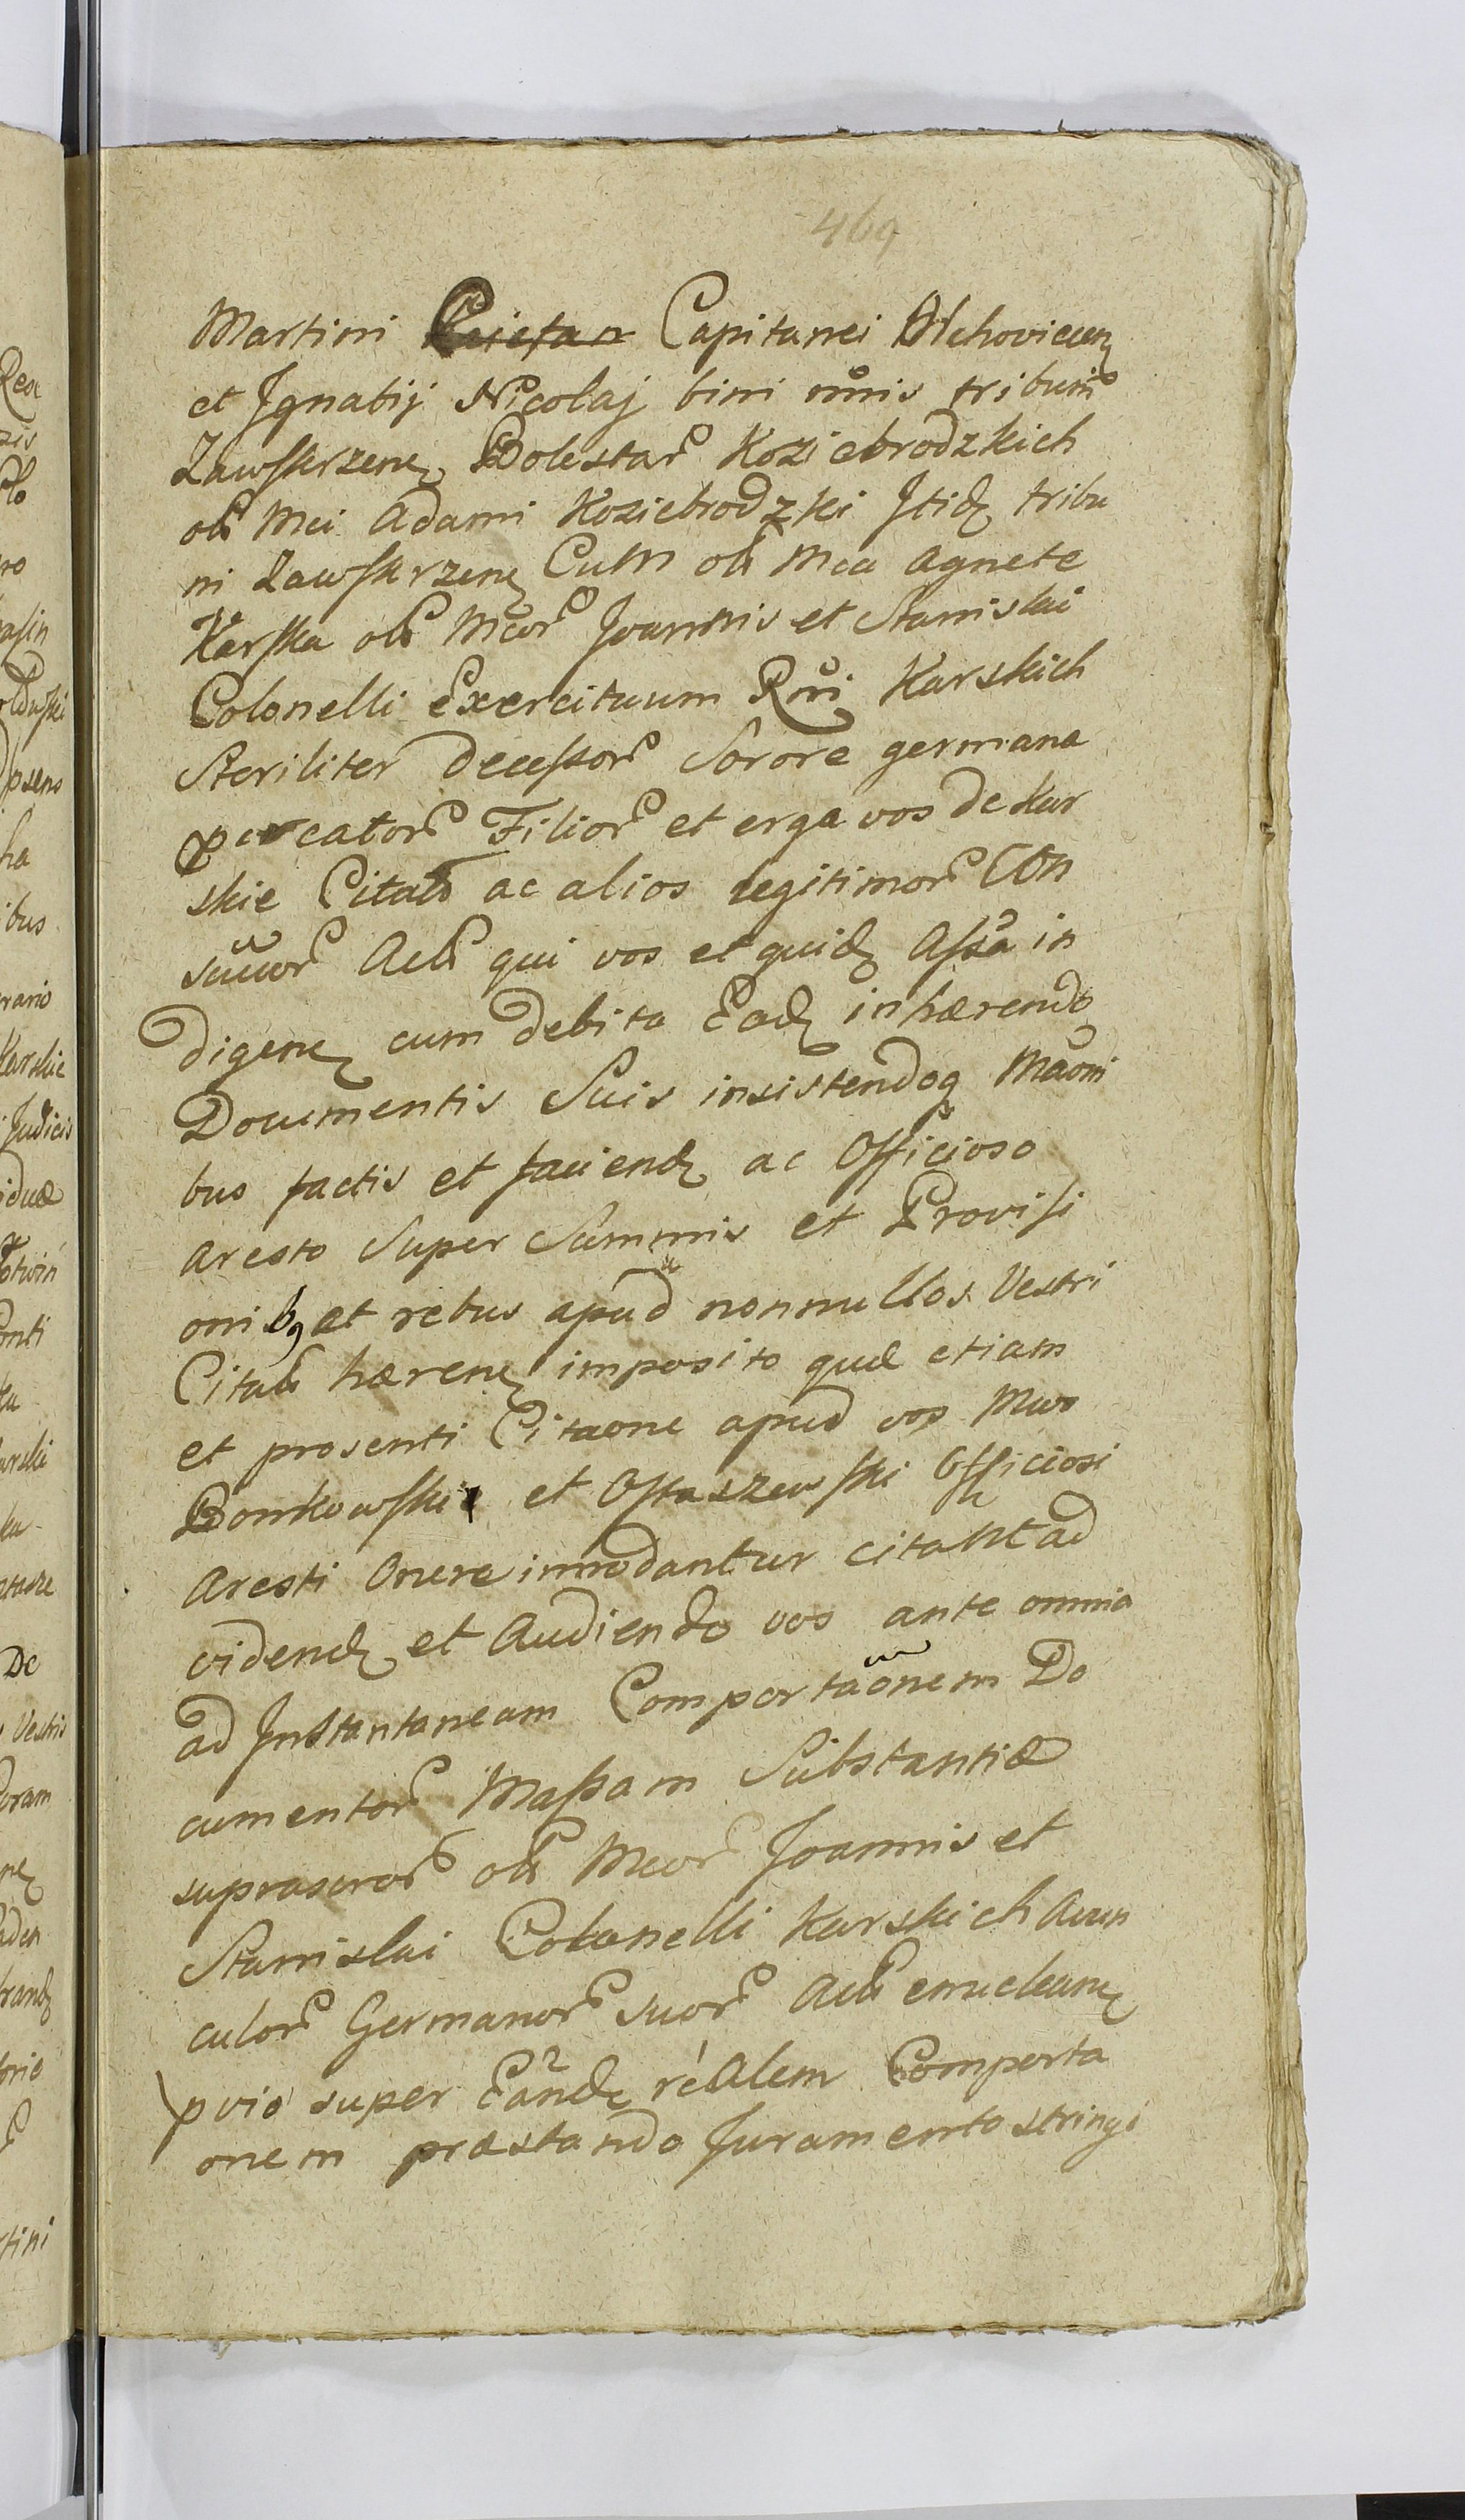 469
Martini Caietan Capitanei Mchovicien
et Jgnatij Nicolaj bini nõis tribunor
Zawskrzenẹ Bolestar Koziebrodzkich
olī Mci Adami Koziebrodzki Jtid tribu
ni Zawskrzenẹ Cum olī Mca Agnete
Karska olī Mcor Joannis et Stanislai
Colonelli Exercituum Rñi Karskich
Steriliter decessor Sorore germana
procreator Filior et erga vos de Kar
skie Citatõ ac alios legitimor Con
suuor Actī qui vos et quid Assa in
digenẹ cum debita Ead inhærendo
Documentis Suis insistendoq Mãoni
bus factis et faciend ac Officioso
Aresto Super Summis et Provisi
onibq et rebus apud nonnullos Vestri
Citatī hærenẹ imposito quæ etiam
et prosenti Citaone apud vos Mcos
Bonkowskie et Ostaszewski Officiosi
Aresti Onere innodantur citant ad
videnđ et Audiendo vos ante omnia
ad Jnstantaneam Comportaõnem Do
cumentor Massam Substantiæ
suprascror olī Mcor Joannis et
Stanislai Colonelli Karskich Avun
culor Germanor suor Actī enucleanẹ
pvio super Eand reAlem Comporta
onem præstando Juramento stringi